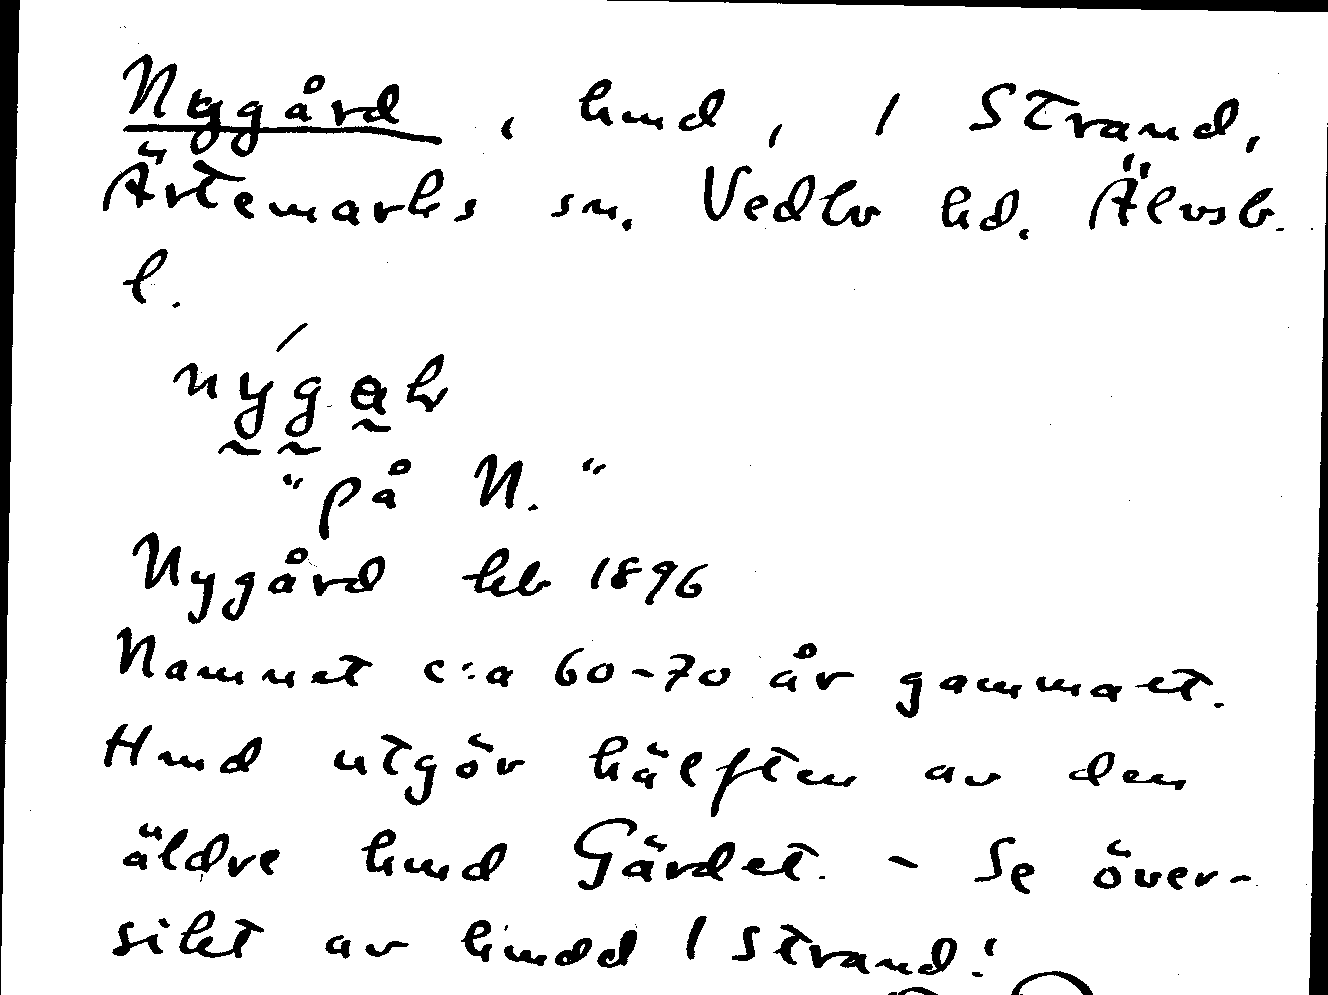 Nygård, hmd, 1 Strand,
Ärtemarks sn. Vedbo hd. Älvsb.
l.
"på N."
Nygård kb 1896
Namnet c:a 60-70 år gammalt.
Hmd utgör hälften av den
äldre hmd Gärdet. - Se över-
sikt av hmdd 1 Strand!